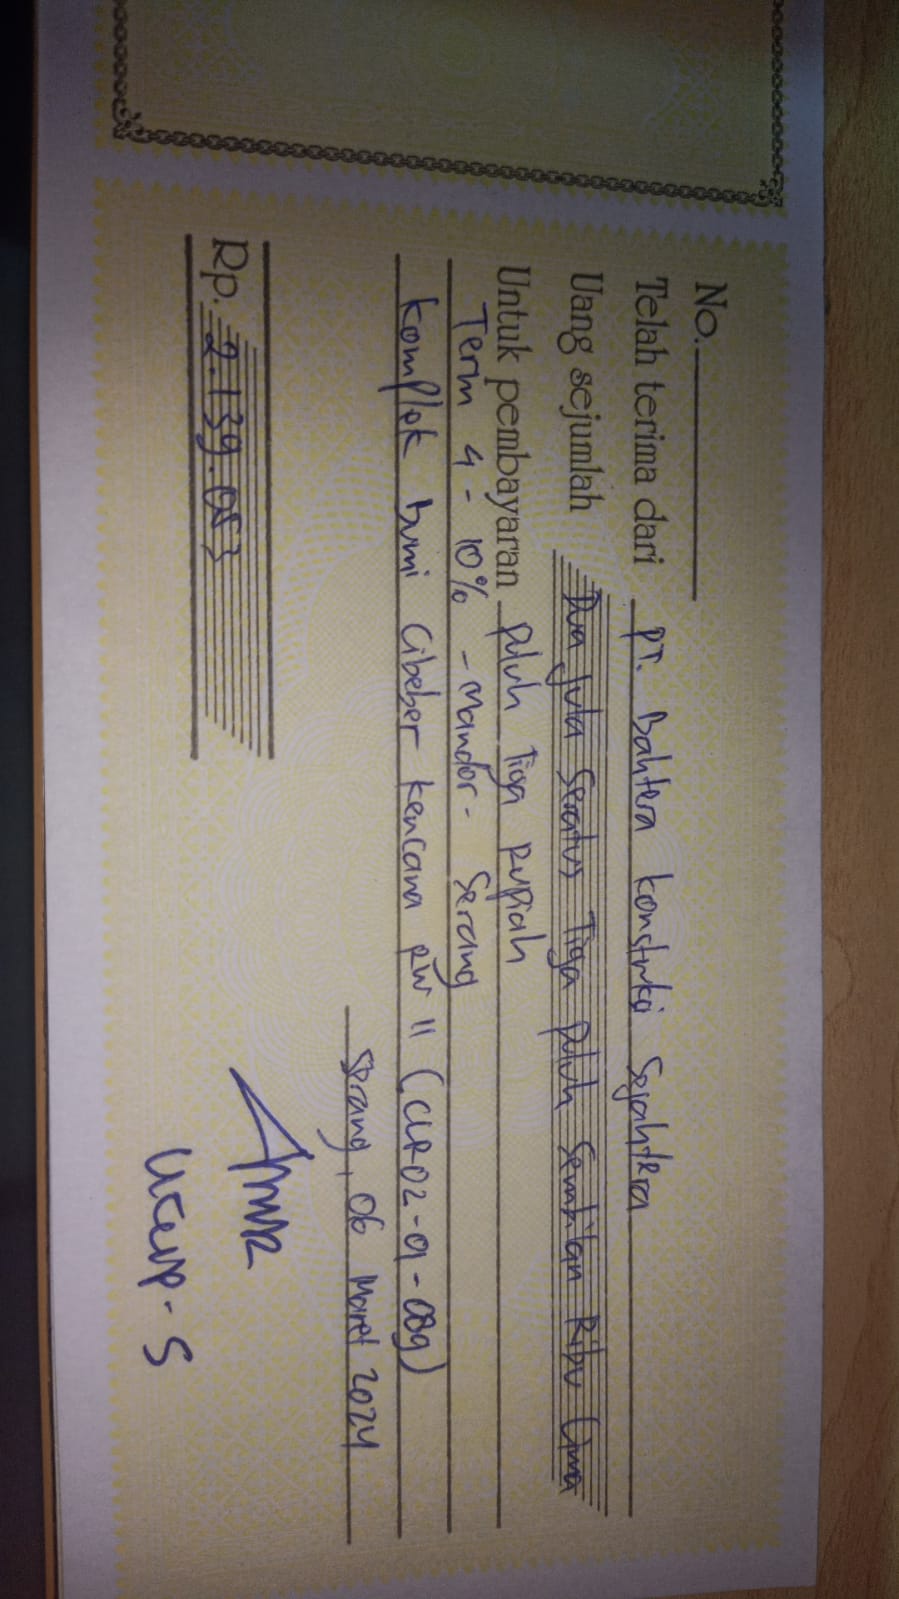 No.
Telah terima dari PT. Bahtera konstruksi Sejahtera
Uang sejumlah Dua juta Seratus Tiga puluh Sembilan Ribu Lima
Untuk pembayaran puluh Tiga Rupiah
Term 4 - 10% - Mandor - Serang
Komplek bumi Cibeber kencana RW 11 (CLR02-9-089)
Serang, 06 Maret 2024
Rp. 2.139.053
ucup-S